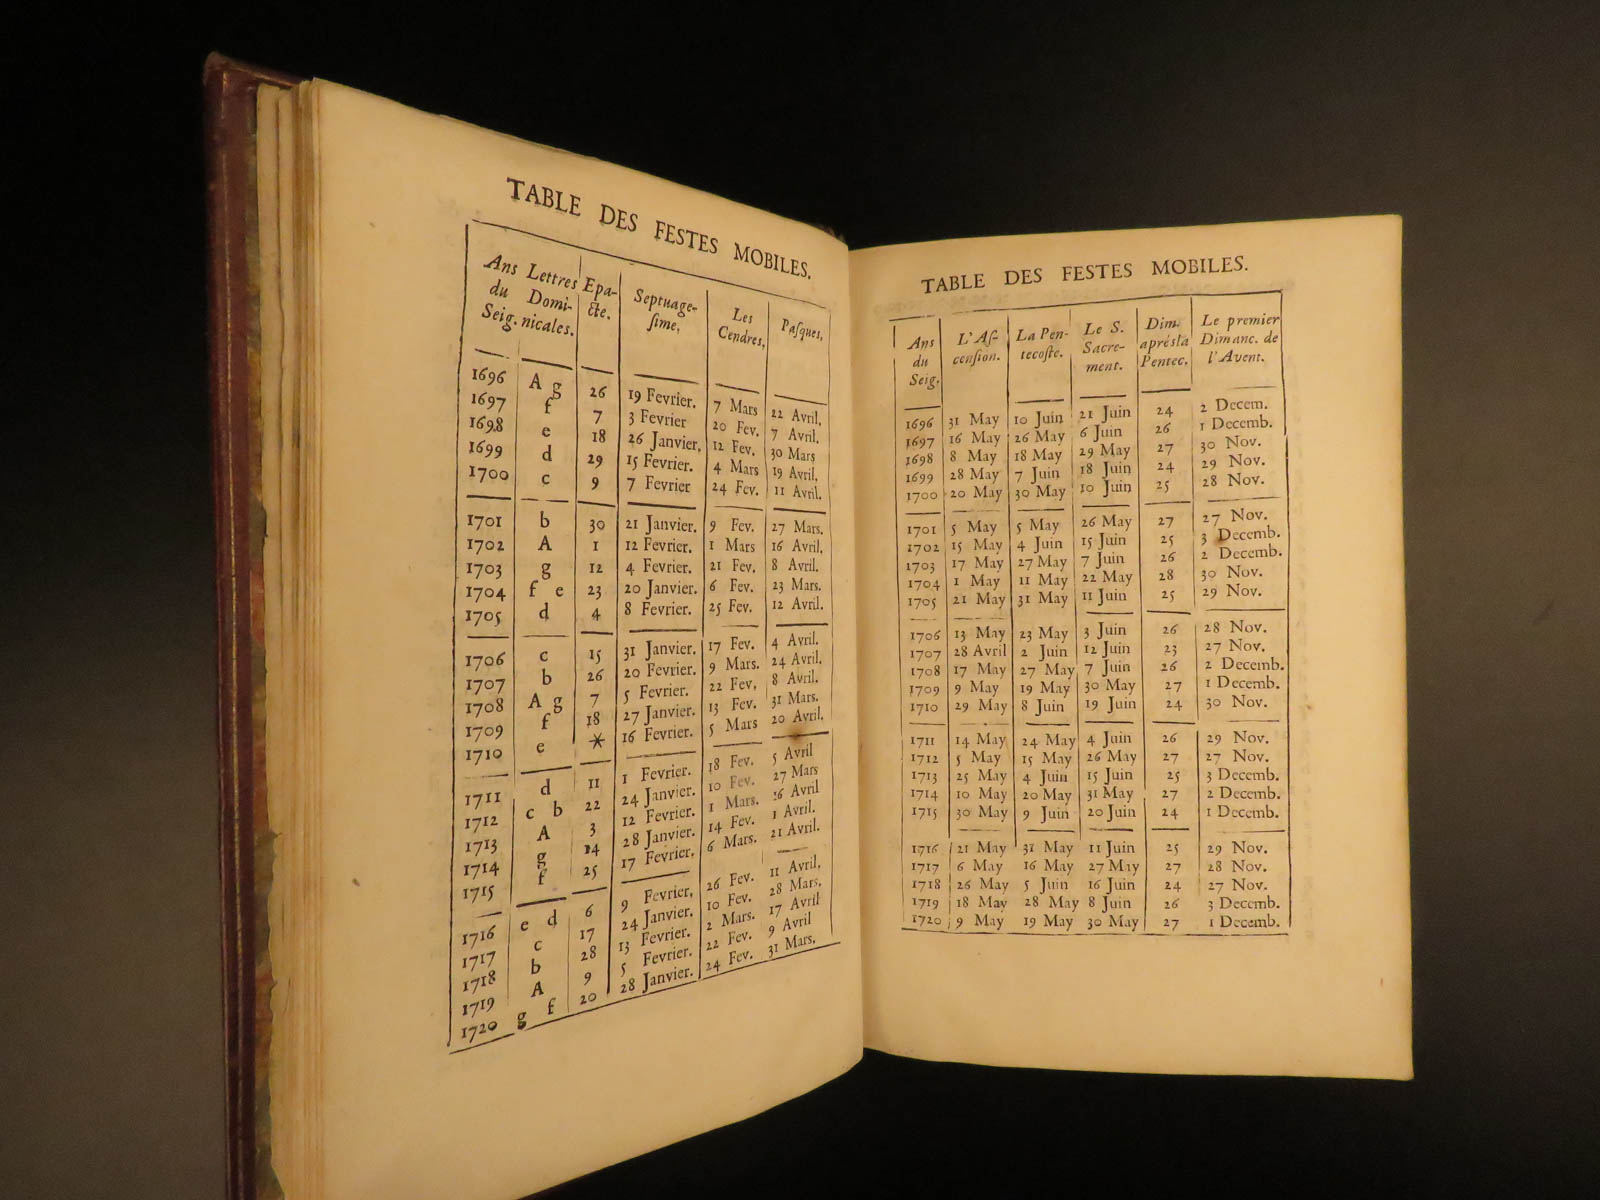 TABLE DES FESTES MOBILES.
Ans du Seig. Lettres Domi-nicales. Epa-cte. Septuage-sime, Les Cendres, Pasques,
1696 A g 26 19 Fevrier. 7 Mars 22 Avril.
1697 f 7 3 Fevrier 20 Fev. 7 Avril.
1698 e 18 26 Janvier, 12 Fev. 30 Mars
1699 d 29 15 Fevrier. 4 Mars 19 Avril.
1700 c 9 7 Fevrier 24 Fev. 11 Avril.
1701 b 30 21 Janvier. 9 Fev. 27 Mars.
1702 A 1 12 Fevrier. 1 Mars 16 Avril.
1703 g 12 4 Fevrier. 21 Fev. 8 Avril.
1704 f e 23 20 Janvier. 6 Fev. 23 Mars.
1705 d 4 8 Fevrier. 25 Fev. 12 Avril.
1706 c 15 31 Janvier. 17 Fev. 4 Avril.
1707 b 26 20 Fevrier. 9 Mars. 24 Avril.
1708 A g 7 5 Fevrier. 22 Fev, 8 Avril.
1709 f 18 27 Janvier. 13 Fev. 31 Mars.
1710 e * 16 Fevrier. 5 Mars 20 Avril.
1711 d 11 1 Fevrier. 18 Fev. 5 Avril
1712 c b 22 24 Janvier. 10 Fev. 27 Mars
1713 A 3 12 Fevrier. 1 Mars. 26 Avril
1714 g 14 28 Janvier. 14 Fev. 1 Avril.
1715 f 25 17 Fevrier, 6 Mars. 21 Avril.
1716 e d 6 9 Fevrier, 26 Fev. 11 Avril,
1717 c 17 24 Janvier, 10 Fev. 28 Mars,
1718 b 28 13 Fevrier. 2 Mars. 17 Avril
1719 A 9 5 Fevrier. 22 Fev. 9 Avril
1720 g f 20 28 Janvier. 24 Fev. 31 Mars.
TABLE DES FESTES MOBILES.
Ans du Seig. L'As-cension. La Pen-tecoste. Le S. Sacre-ment. Dim. aprés la Pentec. Le premier Dimanc. de l'Avent.
1696 31 May 10 Juin 21 Juin 24 2 Decem.
1697 16 May 26 May 6 Juin 26 1 Decemb.
1698 8 May 18 May 29 May 27 30 Nov.
1699 28 May 7 Juin 18 Juin 24 29 Nov.
1700 20 May 30 May 10 Juin 25 28 Nov.
1701 5 May 5 May 26 May 27 27 Nov.
1702 15 May 4 Juin 15 Juin 25 3 Decemb.
1703 17 May 27 May 7 Juin 26 2 Decemb.
1704 1 May 11 May 22 May 28 30 Nov.
1705 21 May 31 May 11 Juin 25 29 Nov.
1706 13 May 23 May 3 Juin 26 28 Nov.
1707 28 Avril 2 Juin 12 Juin 23 27 Nov.
1708 17 May 27 May 7 Juin 26 2 Decemb.
1709 9 May 19 May 30 May 27 1 Decemb.
1710 29 May 8 Juin 19 Juin 24 30 Nov.
1711 14 May 24 May 4 Juin 26 29 Nov.
1712 5 May 15 May 26 May 27 27 Nov.
1713 25 May 4 Juin 15 Juin 25 3 Decemb.
1714 10 May 20 May 31 May 27 2 Decemb.
1715 30 May 9 Juin 20 Juin 24 1 Decemb.
1716 21 May 31 May 11 Juin 25 29 Nov.
1717 6 May 16 May 27 May 27 28 Nov.
1718 26 May 5 Juin 16 Juin 24 27 Nov.
1719 18 May 28 May 8 Juin 26 3 Decemb.
1720 9 May 19 May 30 May 27 1 Decemb.